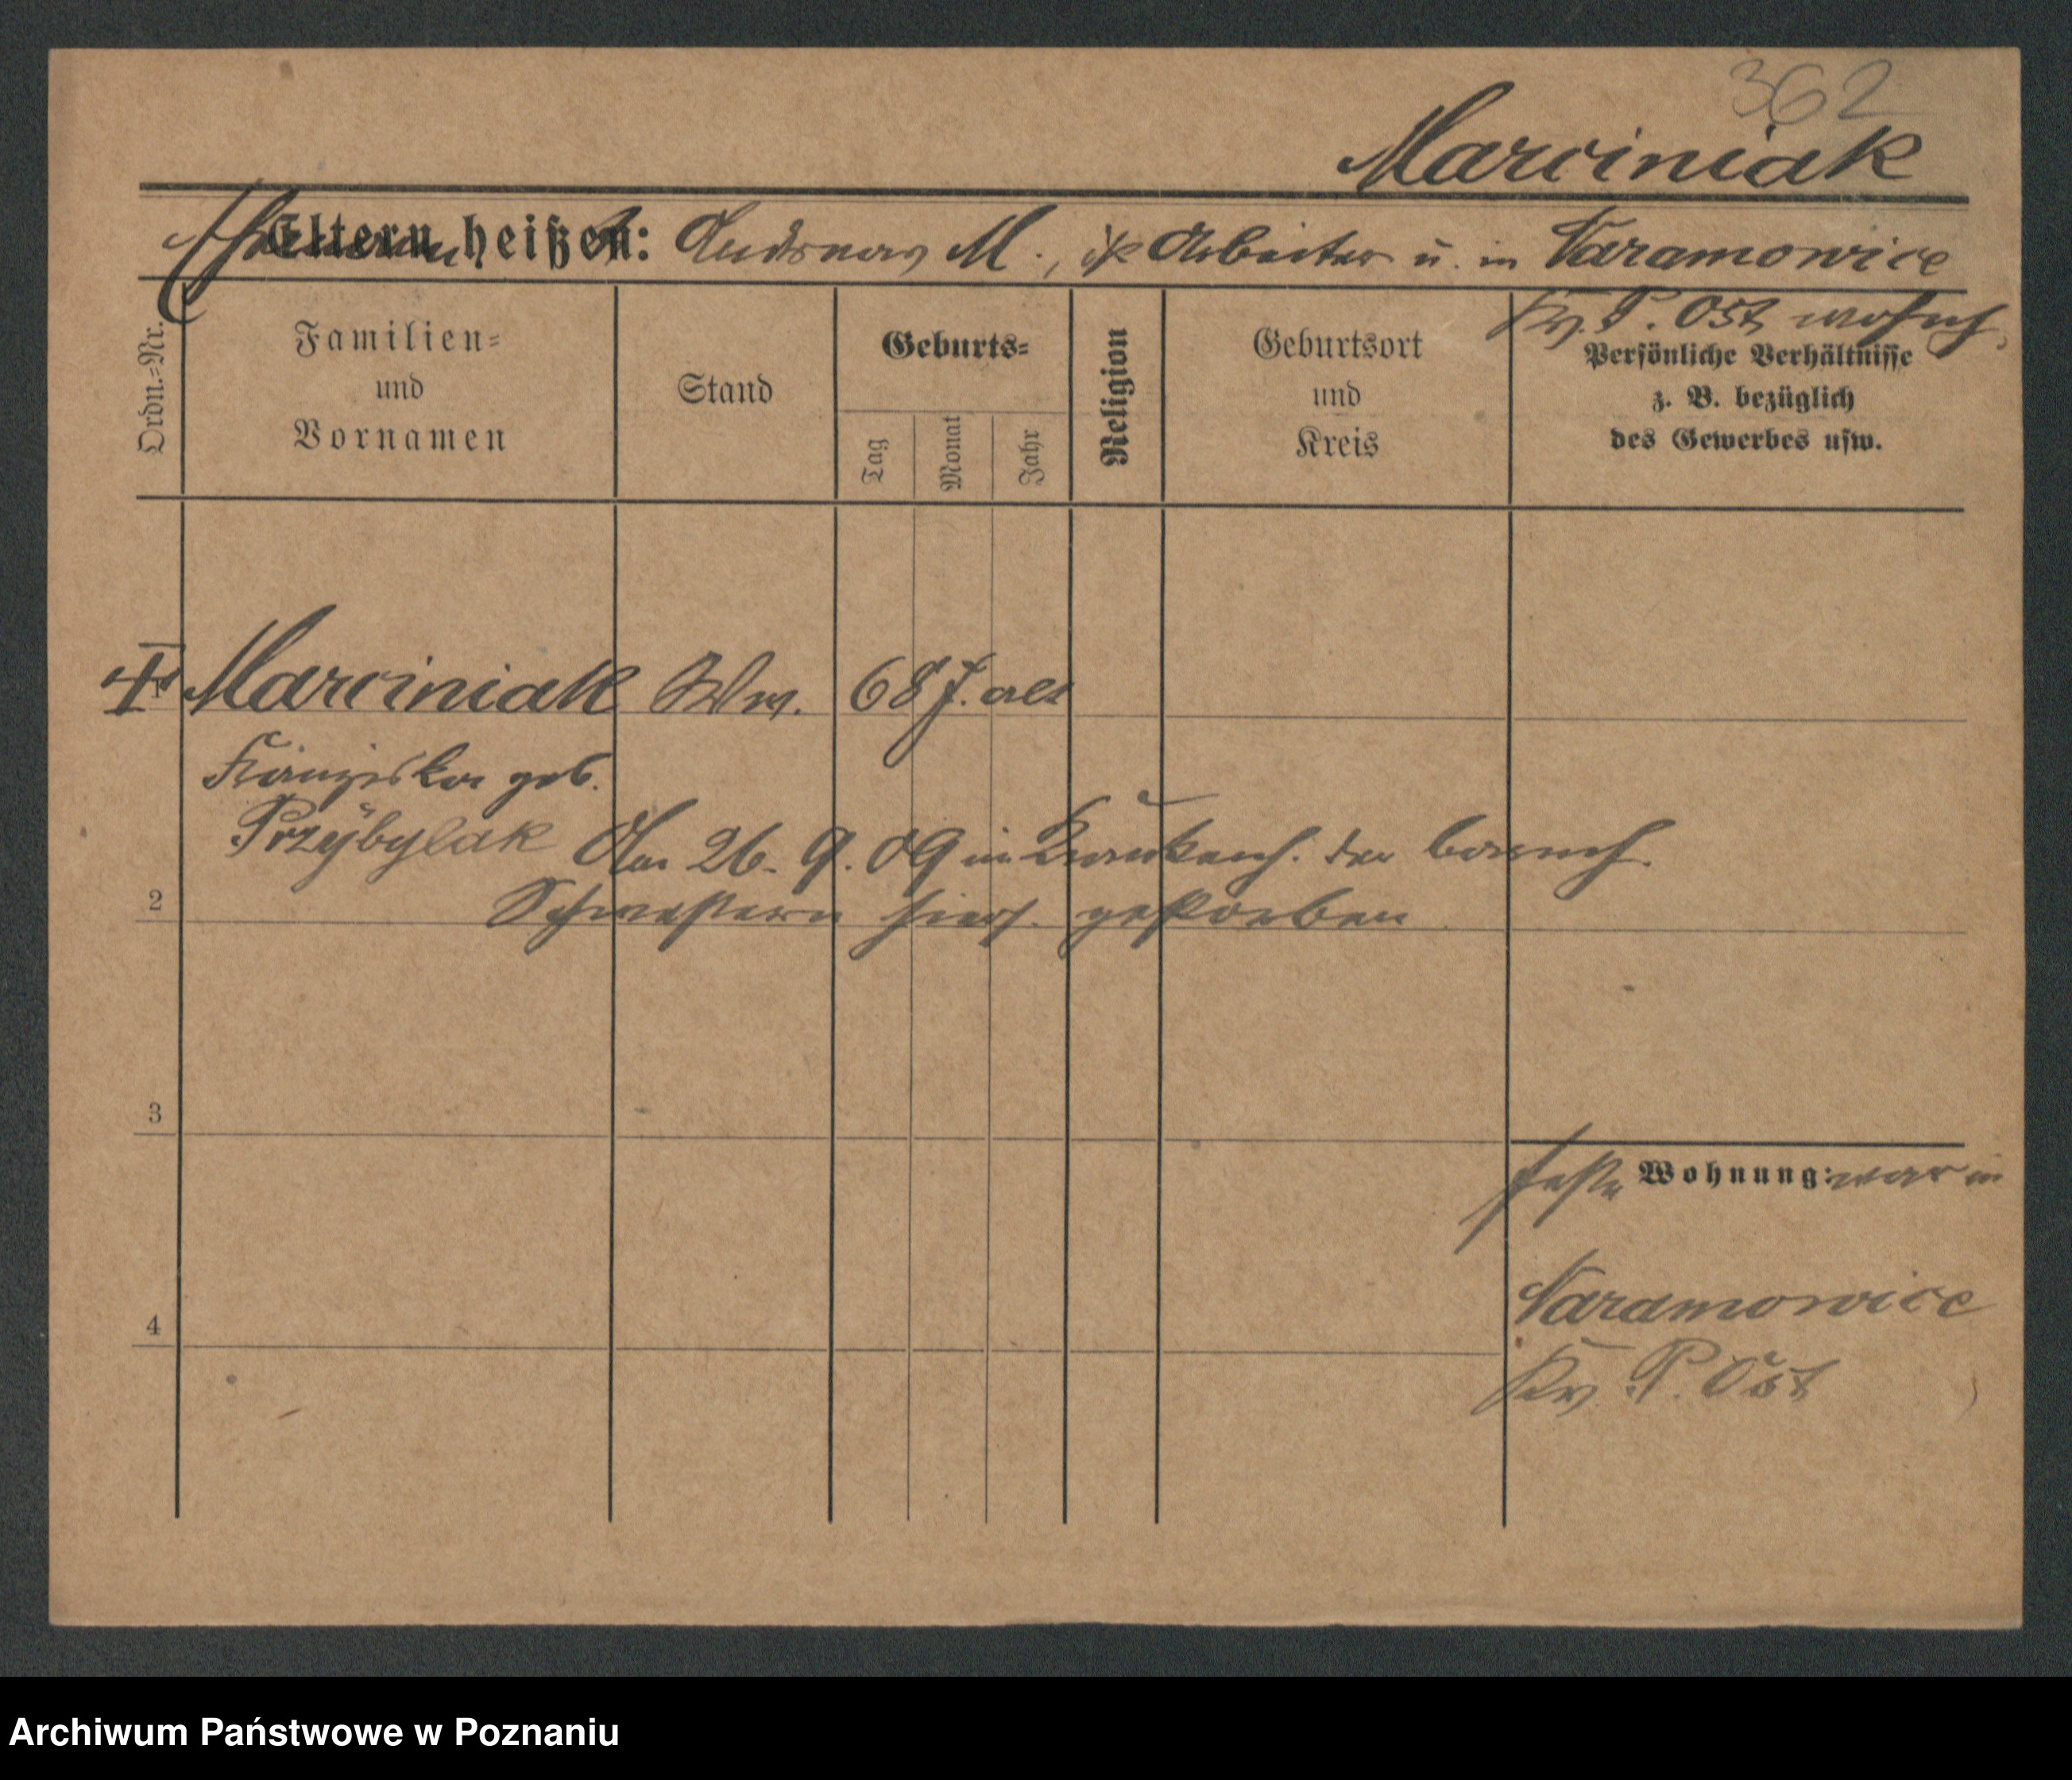 362
Marciniak
Eltern heißen: Andreas M., ist Arbeiter u. in Naramowice
Kr. P. Ost wohnh.
Ordn.=Nr.
Familien=
und
Vornamen
Stand
Geburts=
Tag
Monat
Jahr
Religion
Geburtsort
und
Kreis
Persönliche Verhältnisse
z. B. bezüglich
des Gewerbes usw.
1 Marciniak Ww. 68 J. alt
Franziska geb.
Przÿbylak Am 26. 9. 09 in Krankenh. der barmh.
2 Schwestern hiers. gestorben
3
feste Wohnung: war in
Naramowice
4
Kr. P. Ost
Archiwum Państwowe w Poznaniu